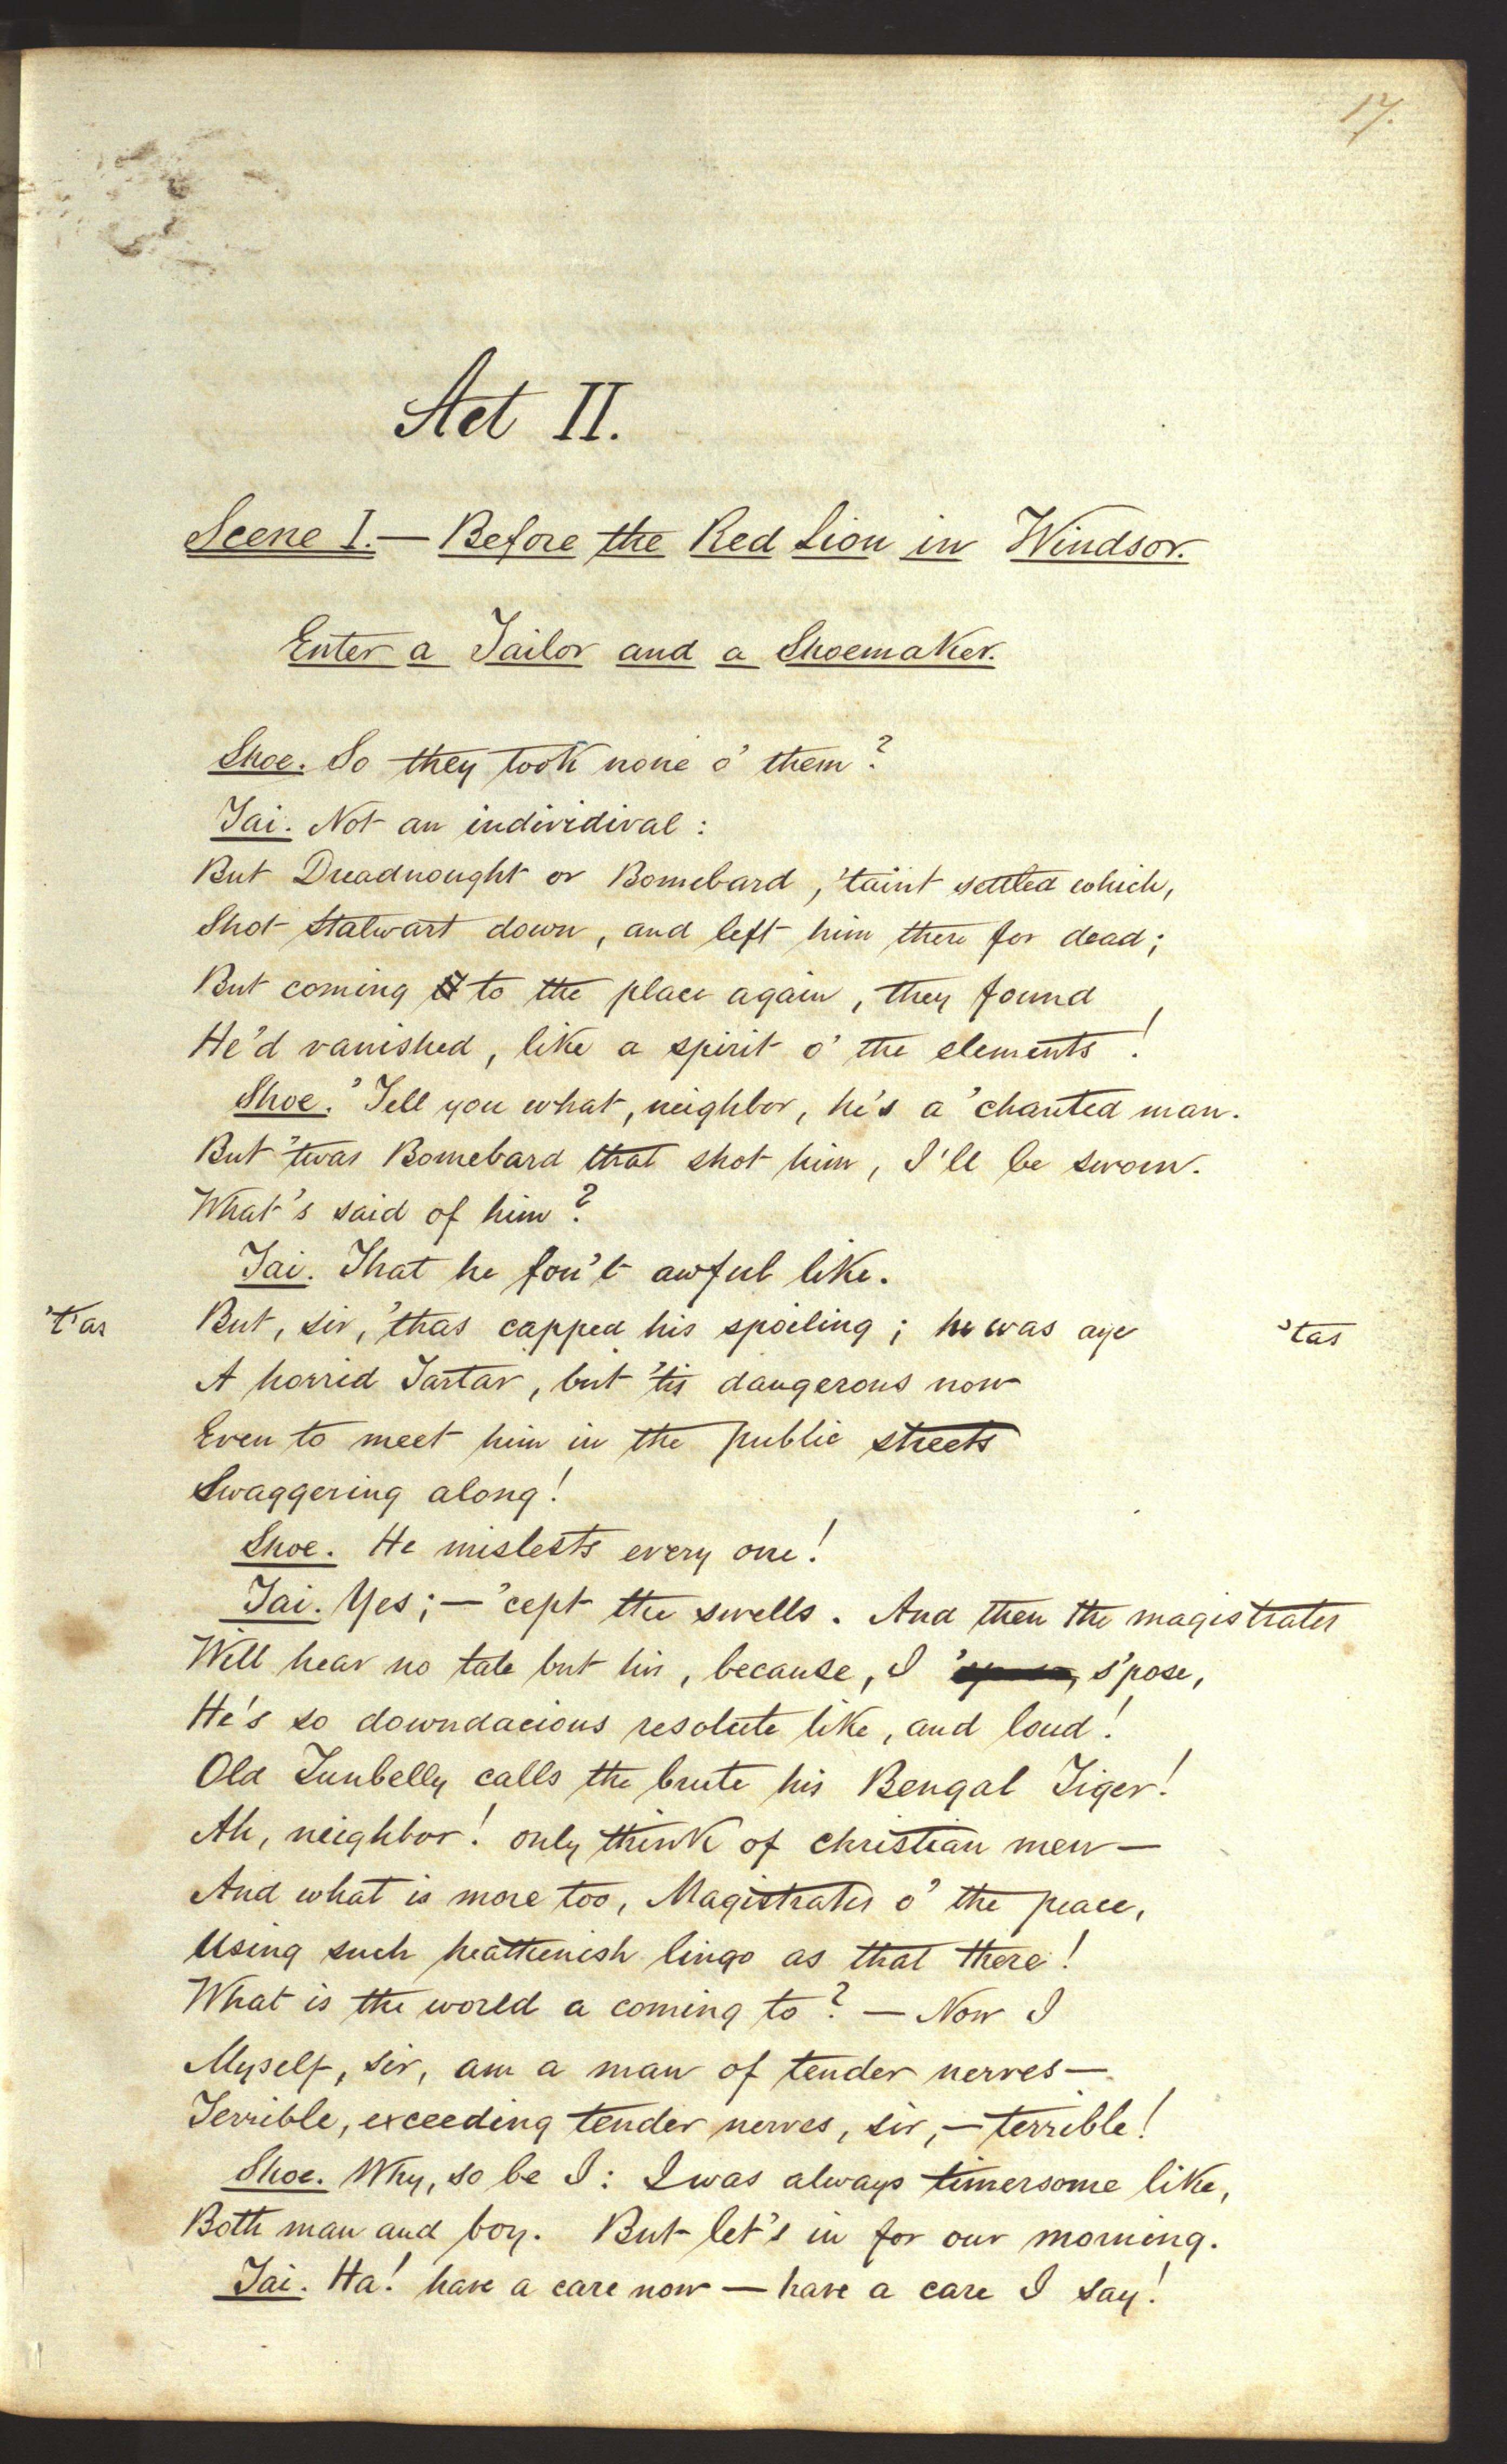 17.
Act II.
Scene I.— Before the Red Lion in Windsor.
Enter a Tailor and a Shoemaker.
Shoe. So they took none o' them?
Tai. Not an individival:
But Dreadnought or Bomebard, 'taint settled which,
Shot Stalwart down, and left him there for dead;
But coming to the place again, they found
He'd vanished, like a spirit o' the elements!
Shoe. 'Tell you what, neighbor, he's a 'chanted man.
But 'twas Bomebard that shot him, I'll be sworn.
What's said of him?
Tai. That he fou't awful like.
't'as But, sir, 'thas capped his spoiling; he was aye 'tas
A horrid Tartar, but 'tis dangerous now
Even to meet him in the public streets
Swaggering along!
Shoe. He mislests every one!
Tai. Yes;— 'cept the swells. And then the magistrates
Will hear no tale but his, because, I s'pose,
He's so downdacious resolute like, and loud!
Old Tunbelly calls the brute his Bengal Tiger!
Ah, neighbor! only think of christian men—
And what is more too, Magistrates o' the peace,
Using such heathenish lingo as that there!
What is the world a coming to? — Now I
Myself, sir, am a man of tender nerves—
Terrible, exceeding tender nerves, sir,— terrible!
Shoe. Why, so be I: I was always timersome like,
Both man and boy. But let's in for our morning.
Tai. Ha! have a care now — have a care I say!